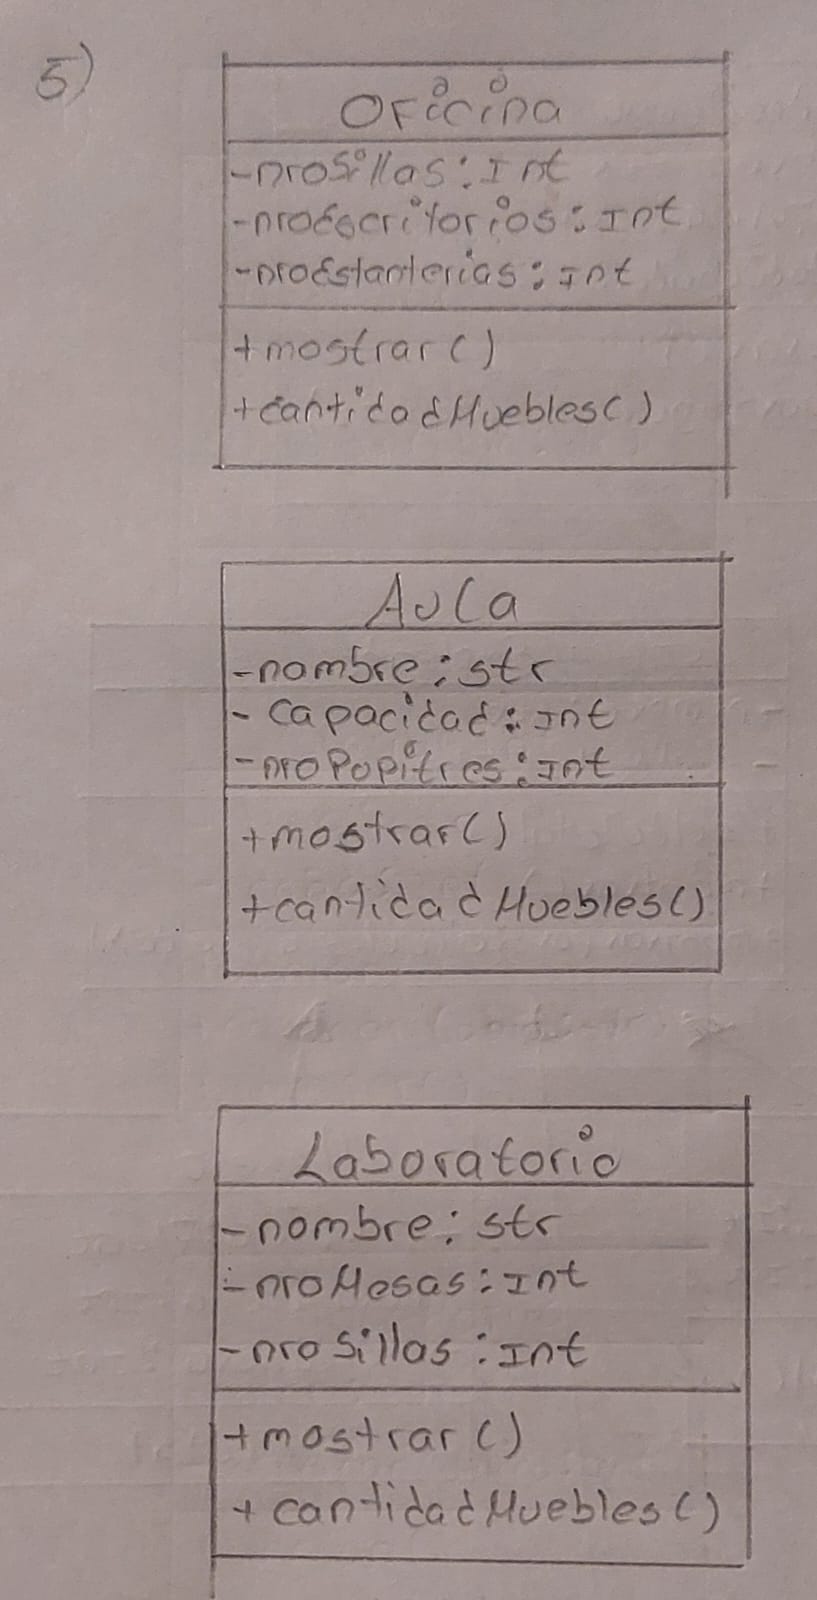 5)
Oficina
-nroSillas: Int
-nroEscritorios: Int
-nroEstanterias: Int
+mostrar()
+cantidadMuebles()
Aula
-nombre: str
-capacidad: Int
-nroPupitres: Int
+mostrar()
+cantidadMuebles()
Laboratorio
-nombre: str
-nroMesas: Int
-nroSillas: Int
+mostrar()
+cantidadMuebles()